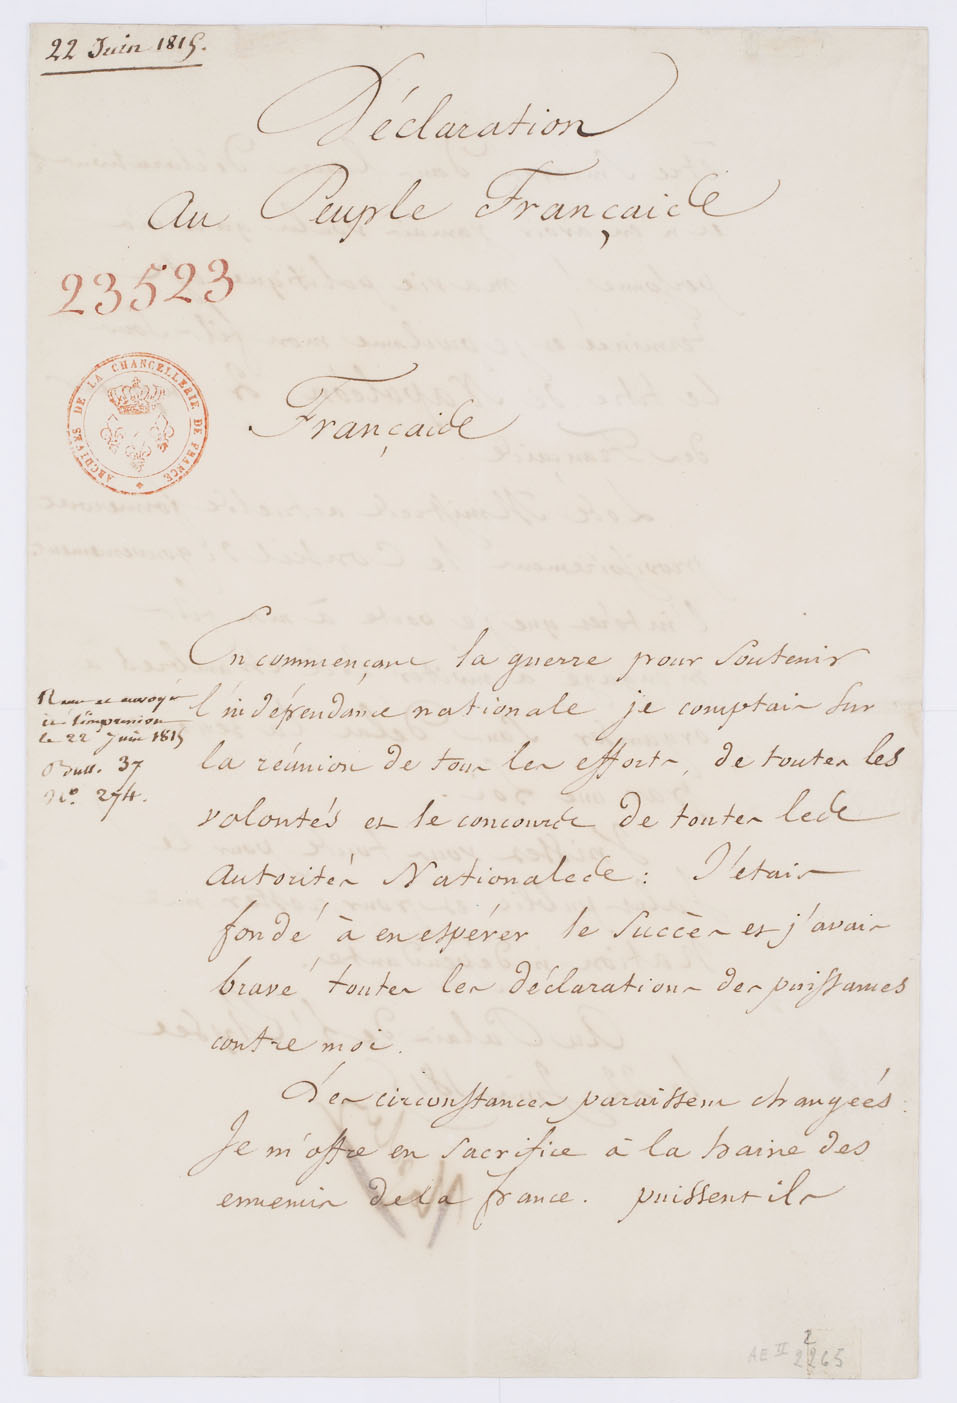 22 Juin 1815.
Déclaration
Au Peuple Français
23523
ARCHIVES DE LA CHANCELLERIE DE FRANCE
Français
En commençant la guerre pour soutenir
l'indépendance nationale je comptais sur
la réunion de tous les efforts, de toutes les
volontés et le concours de toutes les
autorités Nationales : J'etais
fondé à en espérer le succès et j'avais
bravé toutes les déclarations des puissances
contre moi.
Les circonstances paraissent changées :
Je m'offre en sacrifice à la haine des
ennemis de la france. puissent ils
et envoyé
à l'impression
le 22 Juin 1815
Bull. 37
No. 274.
AE II 2265
2